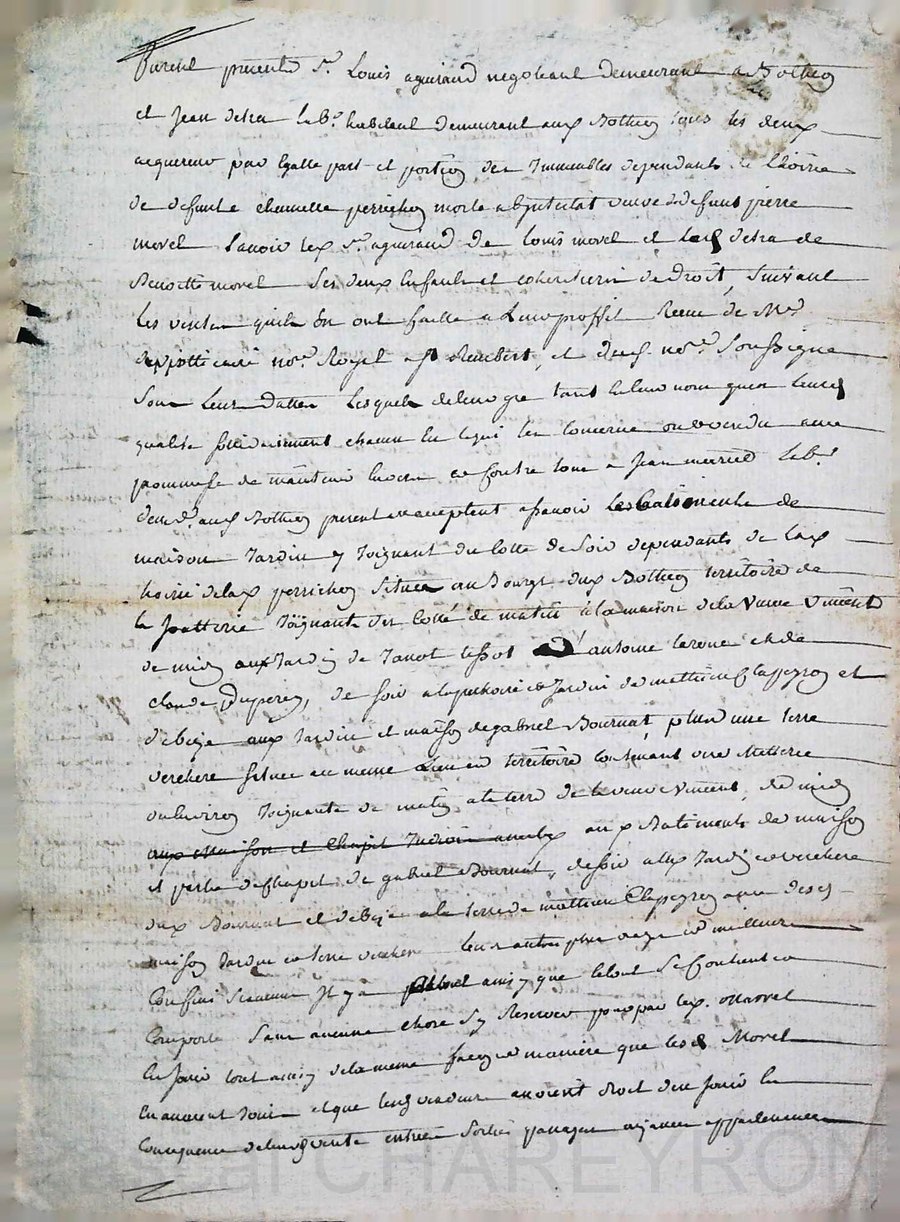 furent presents Sr. Louis aguiraud negotiant demeurant a Bothéoy
et Jean detra lab. habitant demeurant aux Bothéoy tous les deux
acquereur par Egalle part et portion des Immeubles dependants de L'hoirie
de defunte perrichoy morte abintestat veuve de defunt pierre
morel Savoir led. Sr. aguiraud de Louis morel et led detra de
Benoitte morel Ses deux Enfants et de Droit, Suivant
Les ventes quils En ont faitte a Leur proffit Reçue de Me.
notre. Royal a St Rembert, et deuf. notre. Soussigne
Sous Leurs dattes Lesquels de leur gre tant En leur nom quen Leurs
qualité Sollidairement chacun En ce qui les Concerne ont vendu avec
promesse de maintenir envers et Contre tous a Jean lab.
dem. aux Bothéoy present et acceptant a Savoir Les Batiments de
maison Jardin y Joignant du Cotté de Soir dependants de lad.
hoirie de lad. perrichoy Situés au Bourg dud. Bothéoy territoire de
la Joignants du Cotté de matin a la maison de la veuve Vincent
de midy aux Jardin de tissot d'antoine et de
Claude Duperey, de Soir a la et Jardin de mathieu Clappeyroy et
de bize aux Jardin et maison de gabriel Bournat, plus une terre
verchere Située au meme Lieu et territoire Contenant une
ou Environ Joignante de matin a la terre de la veuve Vincent, de midy
aux maison et Chapit aux Batiments de maison
et partie de Chapit de gabriel Bournat, de Soir aux Jardin et verchere
dud. Bournat et de bize a la terre de mathieu Clappeyroy avec desd.
maison Jardin et terre verchere Leurs autres plus vrays et meilleurs
Confins Si aucun Il y a ainsy que letout Se Contient et
Comporte Sans aucune chose Sy Reserver pour par led. Morel
En Jouir tout ainsy de la meme façon et maniere que lesd. Morel
En avoient Joui et que lesd vendeurs avoient droit den Jouir En
Consequence de leurs vente entrées Sorties passages aizances appartenances
Pascal CHAREYRON